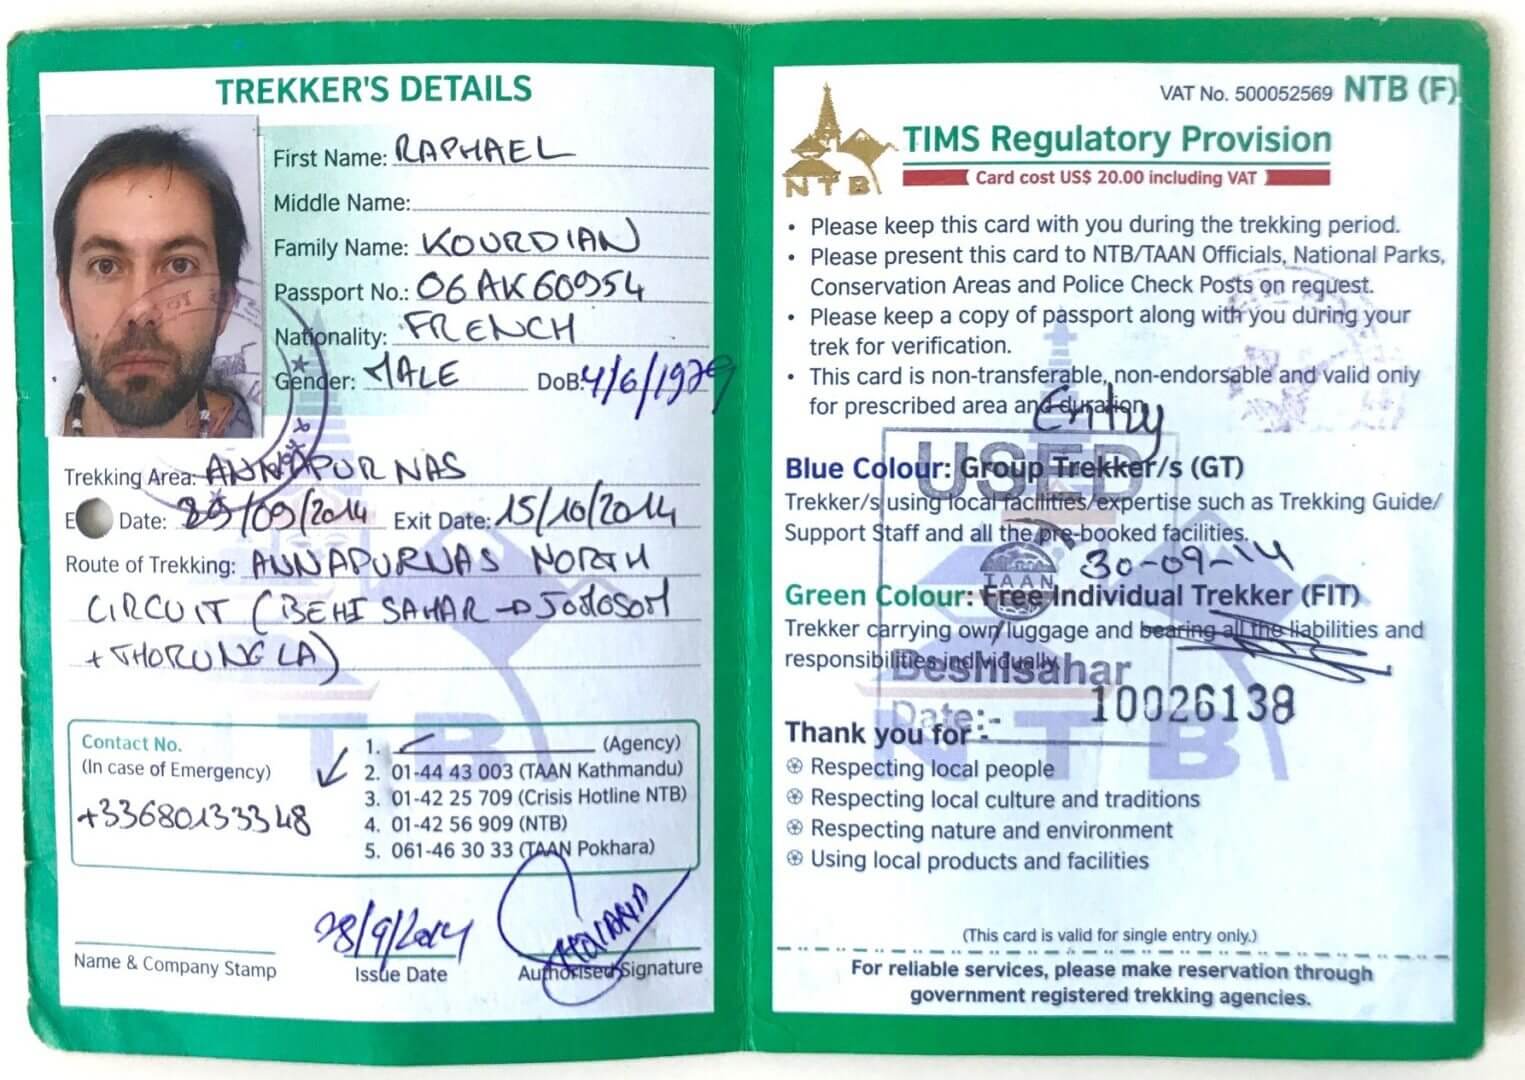 TREKKER'S DETAILS
First Name: RAPHAEL
Middle Name:
Family Name: KOURDIAN
Passport No.: 06AK60954
Nationality: FRENCH
Gender: MALE DoB: 4/6/1979
Trekking Area: ANNAPURNAS
Date: 29/09/2014 Exit Date: 15/10/2014
Route of Trekking: ANNAPURNAS NORTH
CIRCUIT (BEHI SAHAR → JOMOSOM
+ THORUNG LA)
Contact No.
(In case of Emergency)
+33680133348
1. (Agency)
2. 01-44 43 003 (TAAN Kathmandu)
3. 01-42 25 709 (Crisis Hotline NTB)
4. 01-42 56 909 (NTB)
5. 061-46 30 33 (TAAN Pokhara)
28/9/2014
Name & Company Stamp
Issue Date
Authorised Signature
NTB
VAT No. 500052569 NTB (F)
NTB
TIMS Regulatory Provision
Card cost US$ 20.00 including VAT
• Please keep this card with you during the trekking period.
• Please present this card to NTB/TAAN Officials, National Parks,
Conservation Areas and Police Check Posts on request.
• Please keep a copy of passport along with you during your
trek for verification.
• This card is non-transferable, non-endorsable and valid only
for prescribed area and duration.
Entry
USED
Blue Colour: Group Trekker/s (GT)
Trekker/s using local facilities/expertise such as Trekking Guide/
Support Staff and all the pre-booked facilities.
TAAN
30-09-14
Green Colour: Free Individual Trekker (FIT)
Trekker carrying own luggage and bearing all the liabilities and
responsibilities individually.
Beshisahar
Date:-
10026138
NTB
Thank you for -
Respecting local people
Respecting local culture and traditions
Respecting nature and environment
Using local products and facilities
(This card is valid for single entry only.)
For reliable services, please make reservation through
government registered trekking agencies.